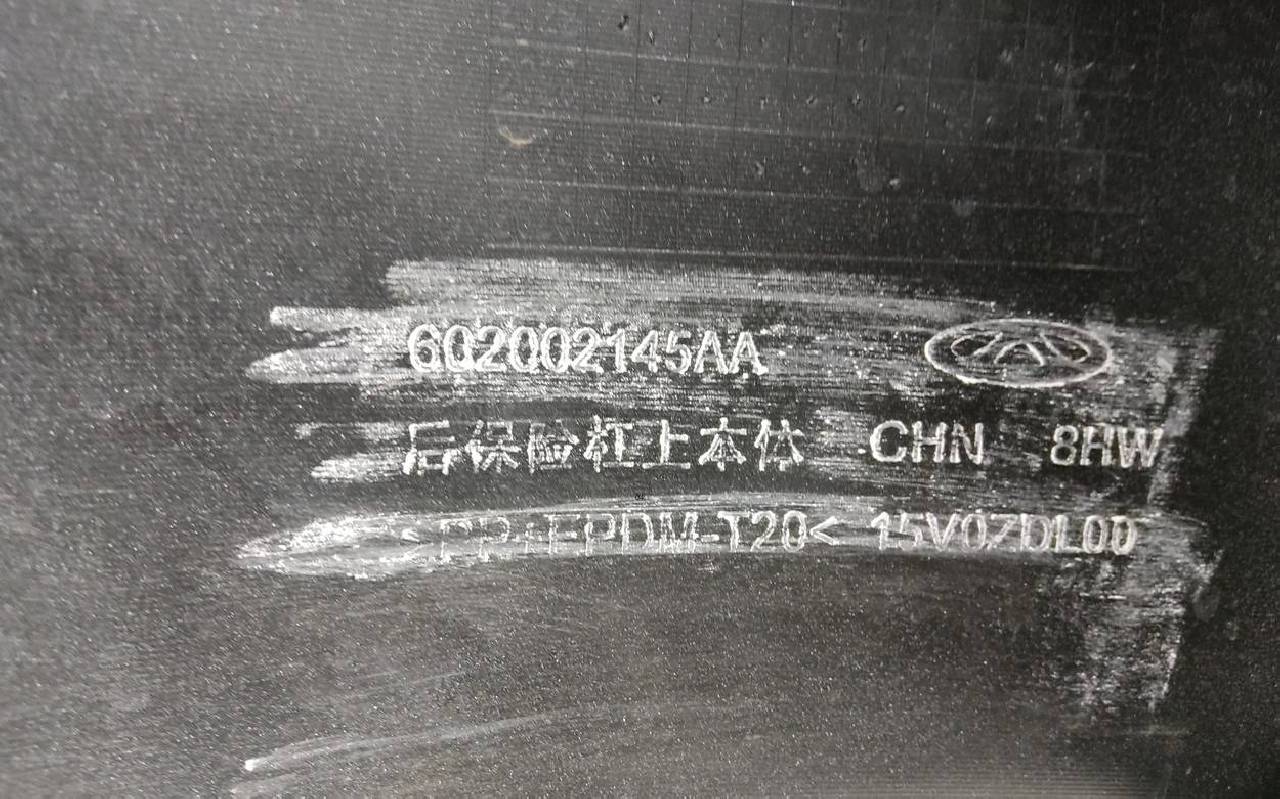 602002145AA
后保险杠上本体 CHN 8HW
>PP+EPDM-T20< 15V0ZDL00